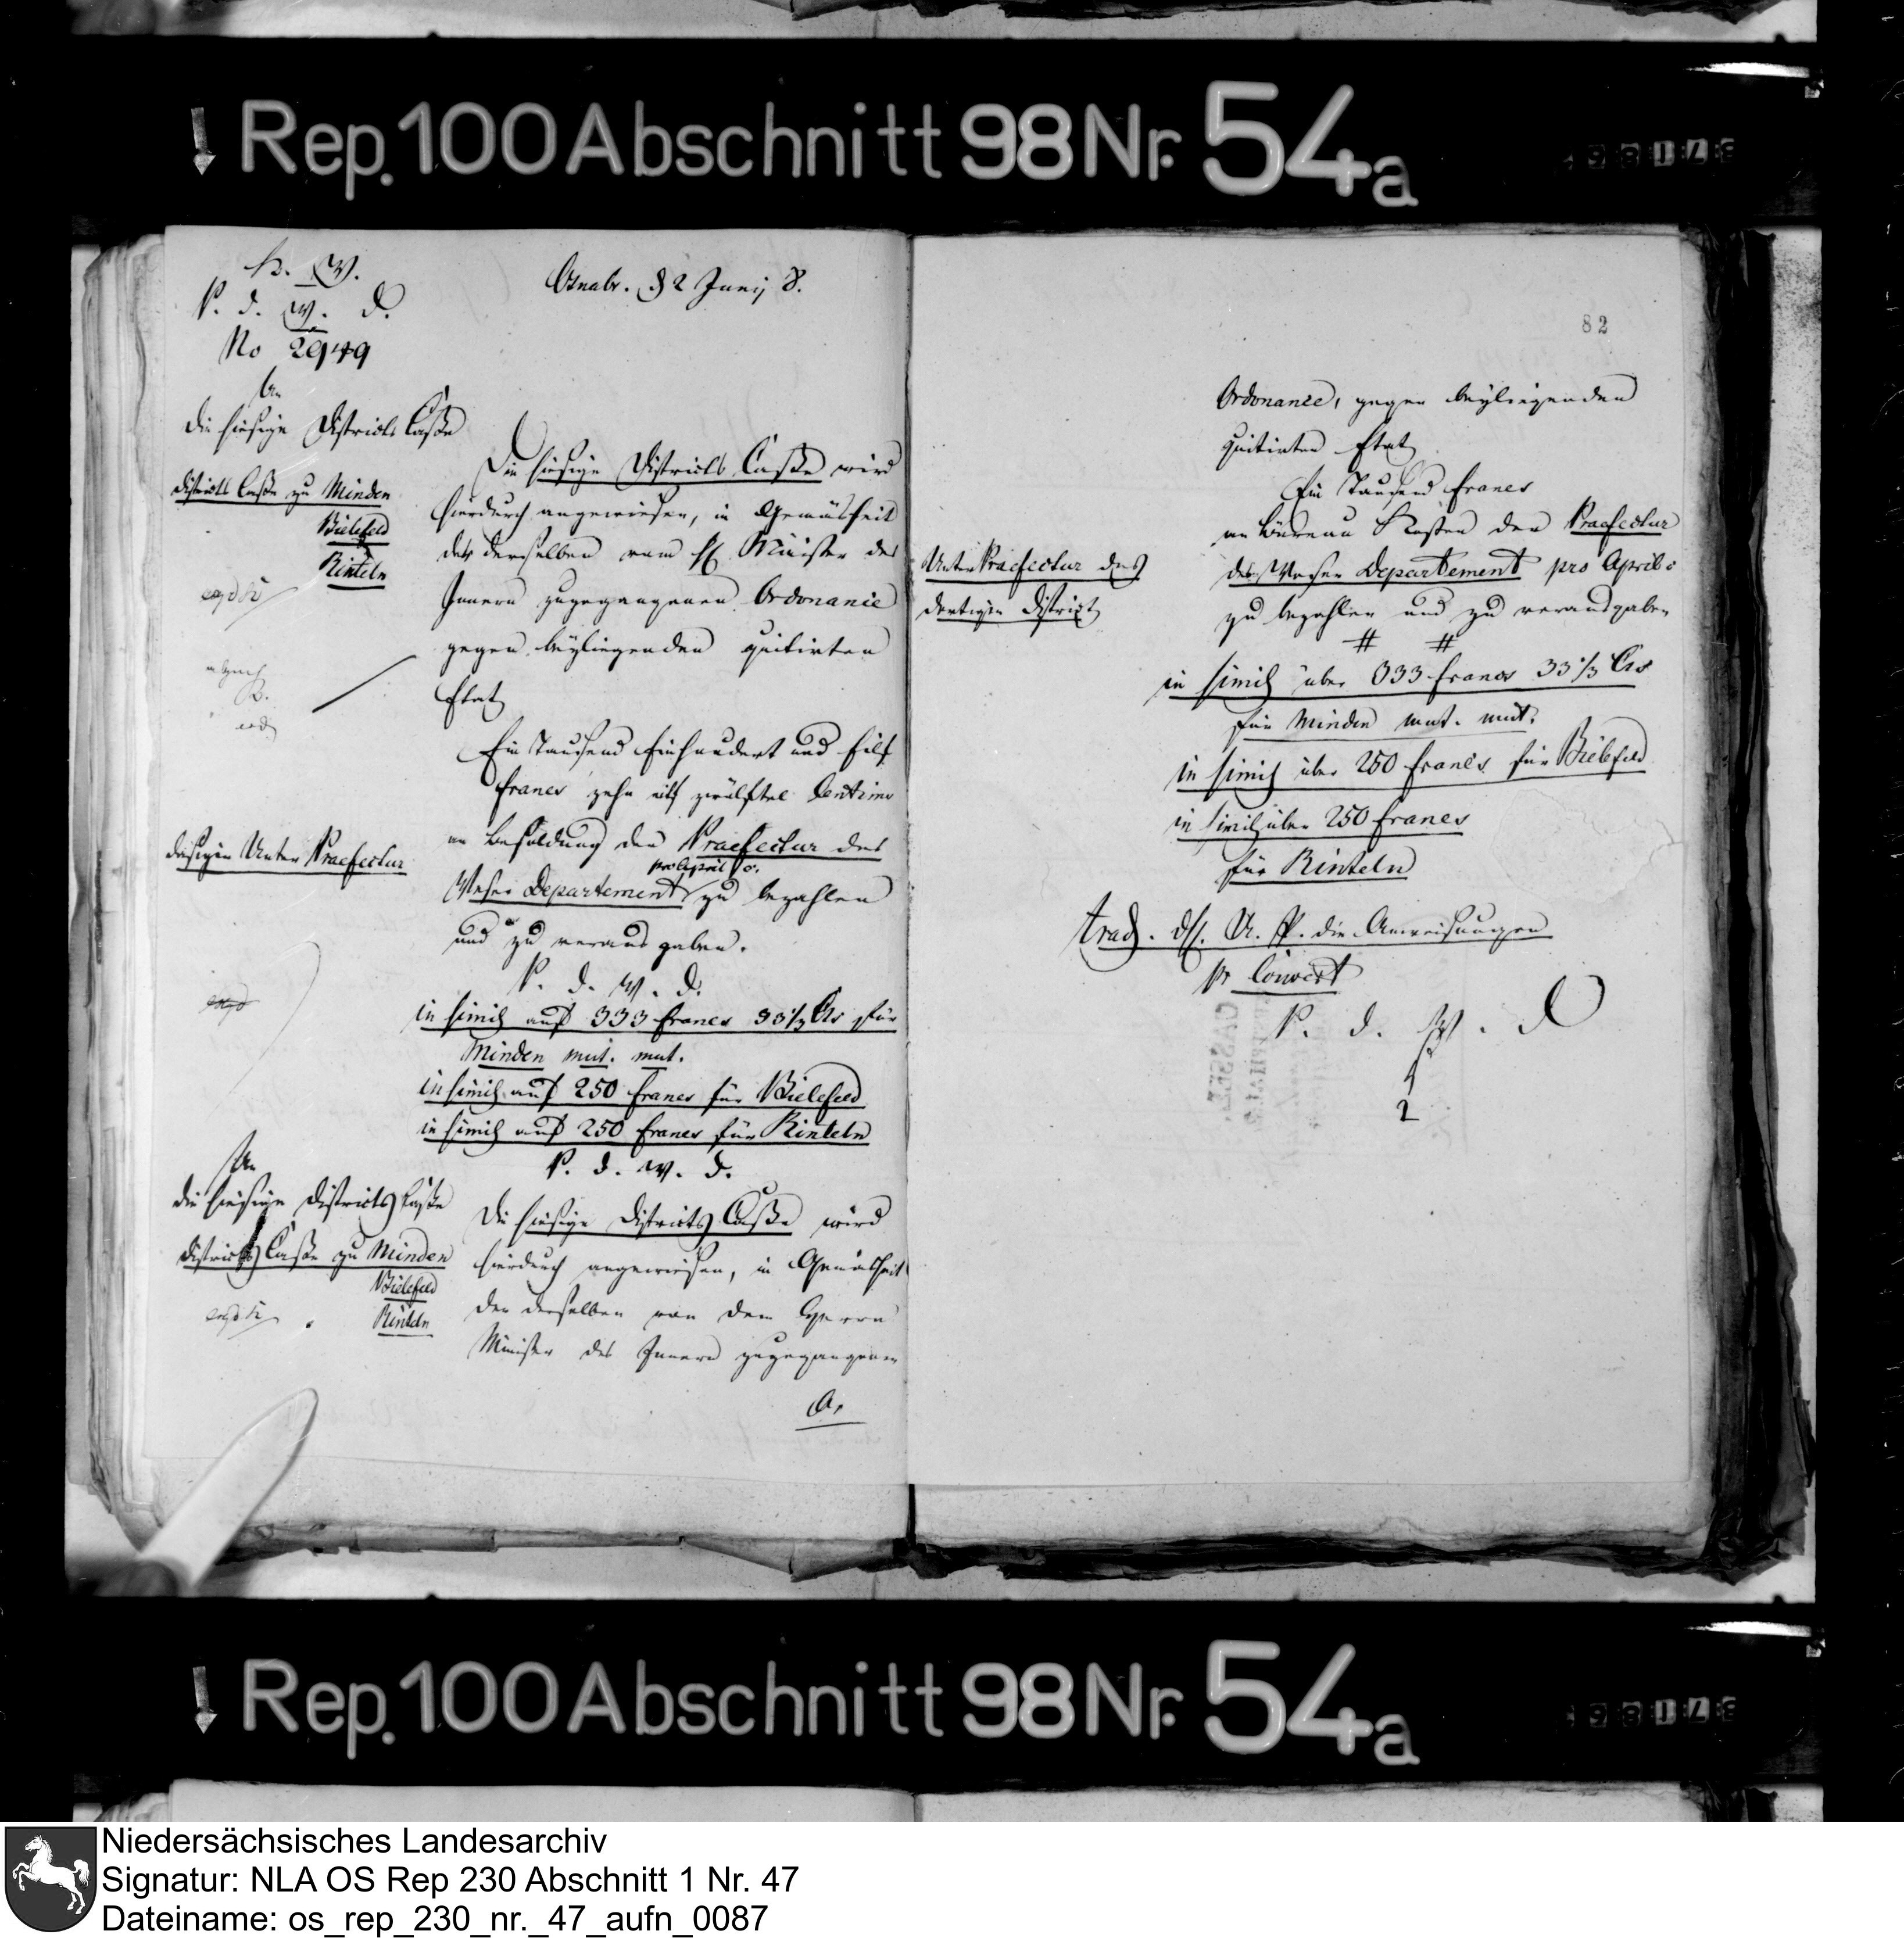 Rep. 100 Abschnitt 98 Nr. 54a
K. W.
P. d. W. D.
No 2949
Osnabr. d 2 Junij 8.
An
die hiesige Districts Caße
Districts Caße zu Minden
Bielefeld
Rinteln
Die hiesige Districts Caße wird
hierdurch angewiesen, in Gemäsheit
der derselben vom H. Minister des
Innern zugegangenen Ordonance
gegen beyliegenden quitirten
Etat
Ein Tausend Einhundert und Eilf
Francs zehn zwölftel Centims
an Besoldung der Praefectur des
pro April c.
Weser Departement zu bezahlen
und zu verausgaben.
dasigen Unter Praefectur
P. d. W. D.
in simili auf 333 Francs 33 1/3 Cts für
Minden mut. mut.
in simili auf 250 Francs für Bielefeld
in simili auf 250 Francs für Rinteln
P. d. W. D.
An
die hiesige Districts Caße
Districts Caße zu Minden
Bielefeld
Rinteln
Die hiesige Districts Caße wird
hierdurch angewiesen, in Gemäsheit
der derselben von dem Herrn
Minister des Innern zugegangenen
O.
82
Ordonance, gegen beyliegenden
quitirten Etat
Ein Tausend Francs
an Büreau Kosten der Praefectur
des Weser Departement pro April c
zu bezahlen und zu verausgaben
# #
Unter Praefectur des
dortigen District
in simili über 333 Francs 33 1/3 Cts
für Minden mut. mut.
in simili über 250 Francs für Bielefeld
in simili über 250 Francs
für Rinteln
trad. die Anweisungen
pr Couvert
P. d. W. D
2
CASSEL
Rep. 100 Abschnitt 98 Nr. 54a
Niedersächsisches Landesarchiv
Signatur: NLA OS Rep 230 Abschnitt 1 Nr. 47
Dateiname: os_rep_230_nr._47_aufn_0087